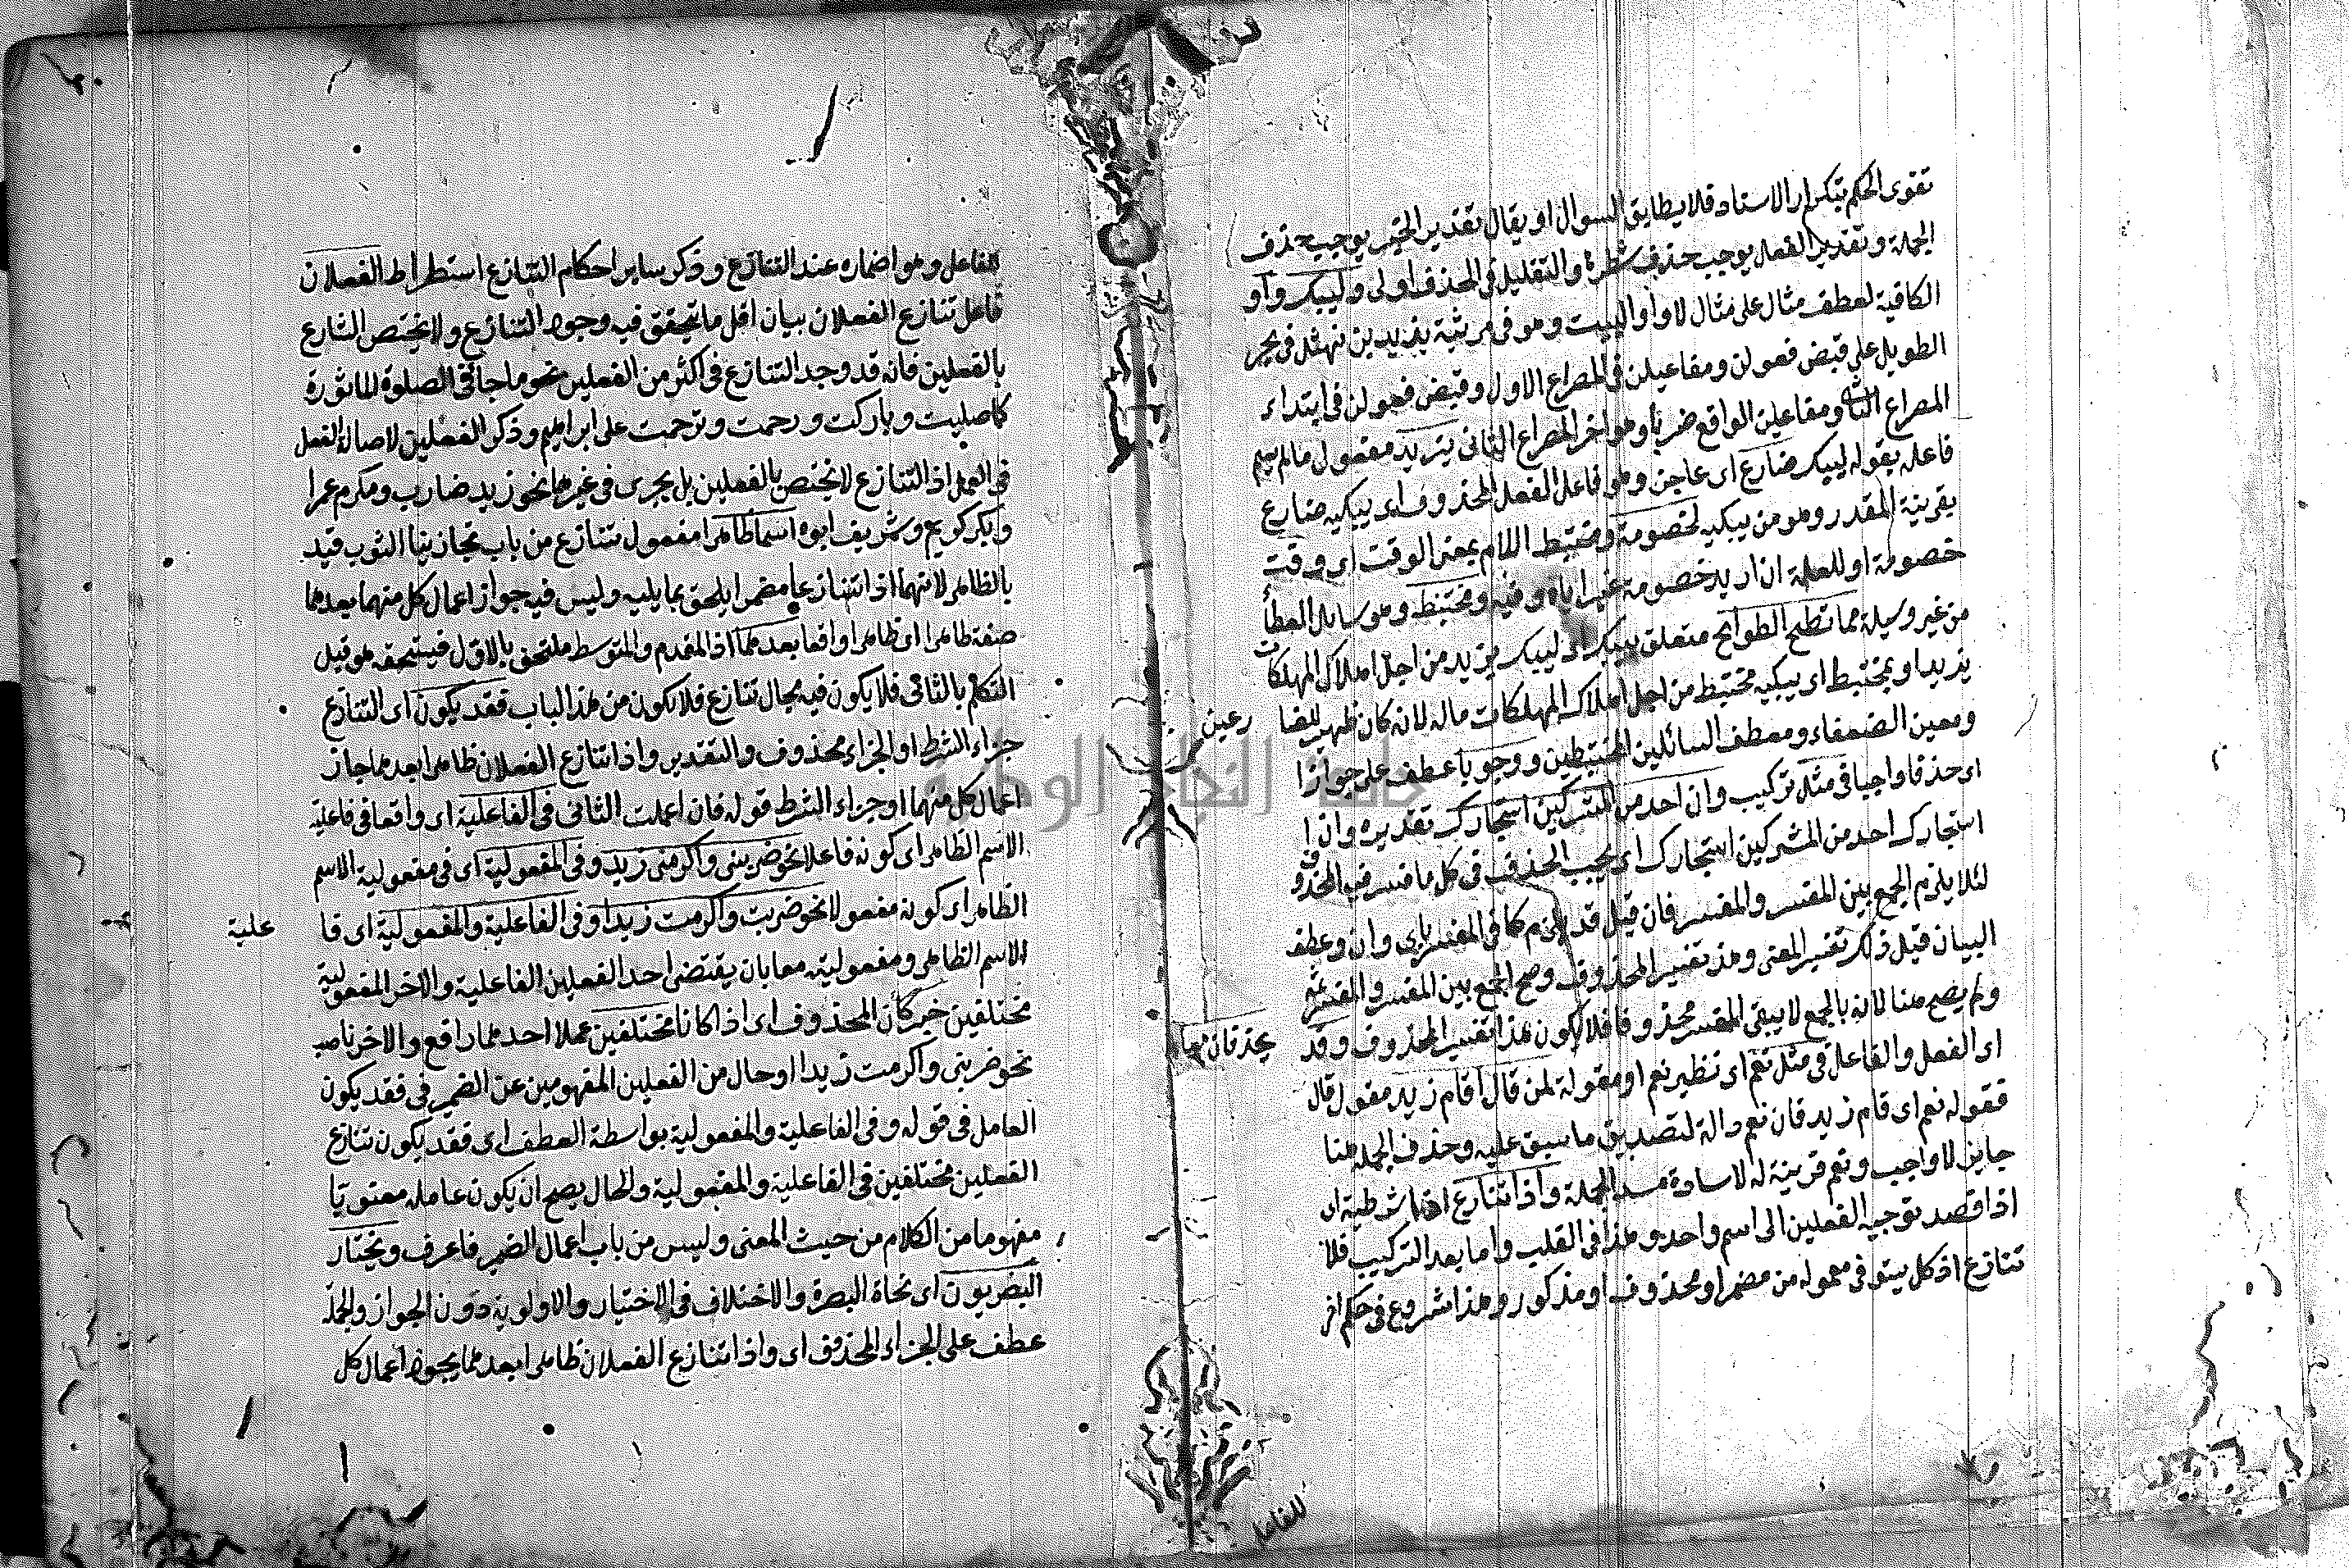 تقوى الحكم بتكرار الاسناد فلا يطابق السوال او يقال تقدير الخبر يوجب حذف
الجملة وتقدير الفعل يوجب حذف شطره والتقليل في الحذف اولى وليبك واو
الكافية لعطف مثال على مثال لا واو البيت وهو في مرثية يزيد بن نهشل في بحر
الطويل على قبض فعولن ومفاعيلن في المصراع الاول وقبض فعولن في ابتداء
المصراع الثاني ومفاعلن الواقع ضربا وهو اخر المصراع الثاني يزيد مفعول ما لم يسم
فاعله بقوله ليبك ضارع اى عاجز وهو فاعل الفعل المحذوف اى يبكيه ضارع
بقرينة المقدر وهو من يبكيه لخصومة ومختبط اللام بمعنى الوقت اى وقت
خصومة او للعلة ان اريد خصومة غير اياه وفيه ومختبط وهو سائل العطا
من غير وسيلة مما تطيح الطوايح متعلق بيبك اى ليبك يزيد من اجل اهلاك المهلكات
يزيدا او بمختبط اى يبكيه مختبط من اجل اهلاك المهلكات ماله لانه كان ظهير للضا رعين
ومعين الضعفاء ومعطف السائلين المختبطين ووجوبا عطف على جوازا
اى حذفا واجبا في مثل تركيب وان احد من المشركين استجارك تقديره وان ا
استجارك احد من المشركين استجارك اى يجب الحذف في كل ما فسر فيه المحذوف
لئلا يلزم الجمع بين المفسر والمفسر فان قيل قد يلزم كما في المفسر باى وان وعطف
البيان قيل ذلك تفسير المعنى وهذ تفسير المحذوف وصح الجمع بين المفسر والمفسر ثمه
ولم يصح هنا لانه بالجمع لا يبقى المفسر محذوفا فلا يكون هذا تفسير المحذوف وقد يحذفان معا
اى الفعل والفاعل في مثل نعم اى نظير نعم او مقولة لمن قال اقام زيد مفول قال
فقوله نعم اى قام زيد فان نعم دالة لتصديق ما سبق عليه وحذف الجمله هنا
جايز لا واجب ونعم قرينة له لا سادة مسد الجملة واذا تنازع اذا شرطية اى
اذا قصد توجيه الفعلين الى اسم واحد وهذا في القلب واما بعد التركيب فلا
تنازع اذ كل يستوفي معموله من مضمر او محذوف او مذكور وهذا شروع في حكم اخر
للفاعل
للفاعل وهو اضماره عند التنازع وذكر ساير احكام التنازع استطراط الفعلان
فاعل تنازع الفعلان بيان اقل ما يتحقق فيه وجود التنازع ولا يختص التنازع
بالفعلين فانه قد وجد التنازع في اكثر من الفعلين نحو ما جا في الصلوة الماثورة
كما صليت وباركت ورحمت وترحمت على ابراهيم وذكر الفعلين لاصالة الفعل
في العمل اذ التنازع لا يختص بالفعلين بل يجرى في غيرهما نحو زيد ضارب ومكرم عمرا
وبكر كريم وشريف ابوه اسما ظاهرا مفعول تنازع من باب تجاذبنا الثوب قيد
بالظاهر لانهما اذا تنازعا مضمرا يلحق بما يليه وليس فيه جواز اعمال كل منهما بعدهما
صفة ظاهرا اى ظاهرا واقعا بعدهما اذ المقدم والمتوسط ملتحق بالاول فيستحقه هو قبل
التكلم بالثاني فلا يكون فيه مجال تنازع فلا يكون من هذ الباب فقد يكون اى التنازع
جزاء الشرط او الجزاء محذوف والتقدير واذا تنازع الفعلان ظاهرا بعدهما جاز
اعمال كل منهما او جزاء الشرط قوله فان اعملت الثاني في الفاعلية اى واقعا في فاعلية
الاسم الظاهر اى كونه فاعلا نحو ضربني واكرمني زيد وفي المفعولية اى في مفعولية الاسم
الظاهر اى كونه مفعولا نحو ضربت واكرمت زيدا وفي الفاعلية والمفعولية اى فا علية
الاسم الظاهر ومفعوليته معا بان يقتضى احد الفعلين الفاعلية والاخر المفعولية
مختلفين خبر كان المحذوف اى اذا كانا مختلفين عملا احدهما رافع والاخر ناصب
نحو ضربني واكرمت زيدا او حال من الفعلين المفهومين عن الضمير في فقد يكون
العامل في قوله وفي الفاعلية والمفعولية بواسطة العطف اى فقد يكون تنازع
الفعلين مختلفين في الفاعلية والمفعولية والحال يصح ان يكون عامله معنويا
مفهوما من الكلام من حيث المعنى وليس من باب اعمال الضمير فاعرف ويختار
البصريون اى نحاة البصرة والاختلاف في الاختيار والاولوية دون الجواز والجملة
عطف على الجزاء المحذوف اى واذا تنازع الفعلان ظاهرا بعدهما يجوز اعمال كل
جامعة النجاح الوطنية